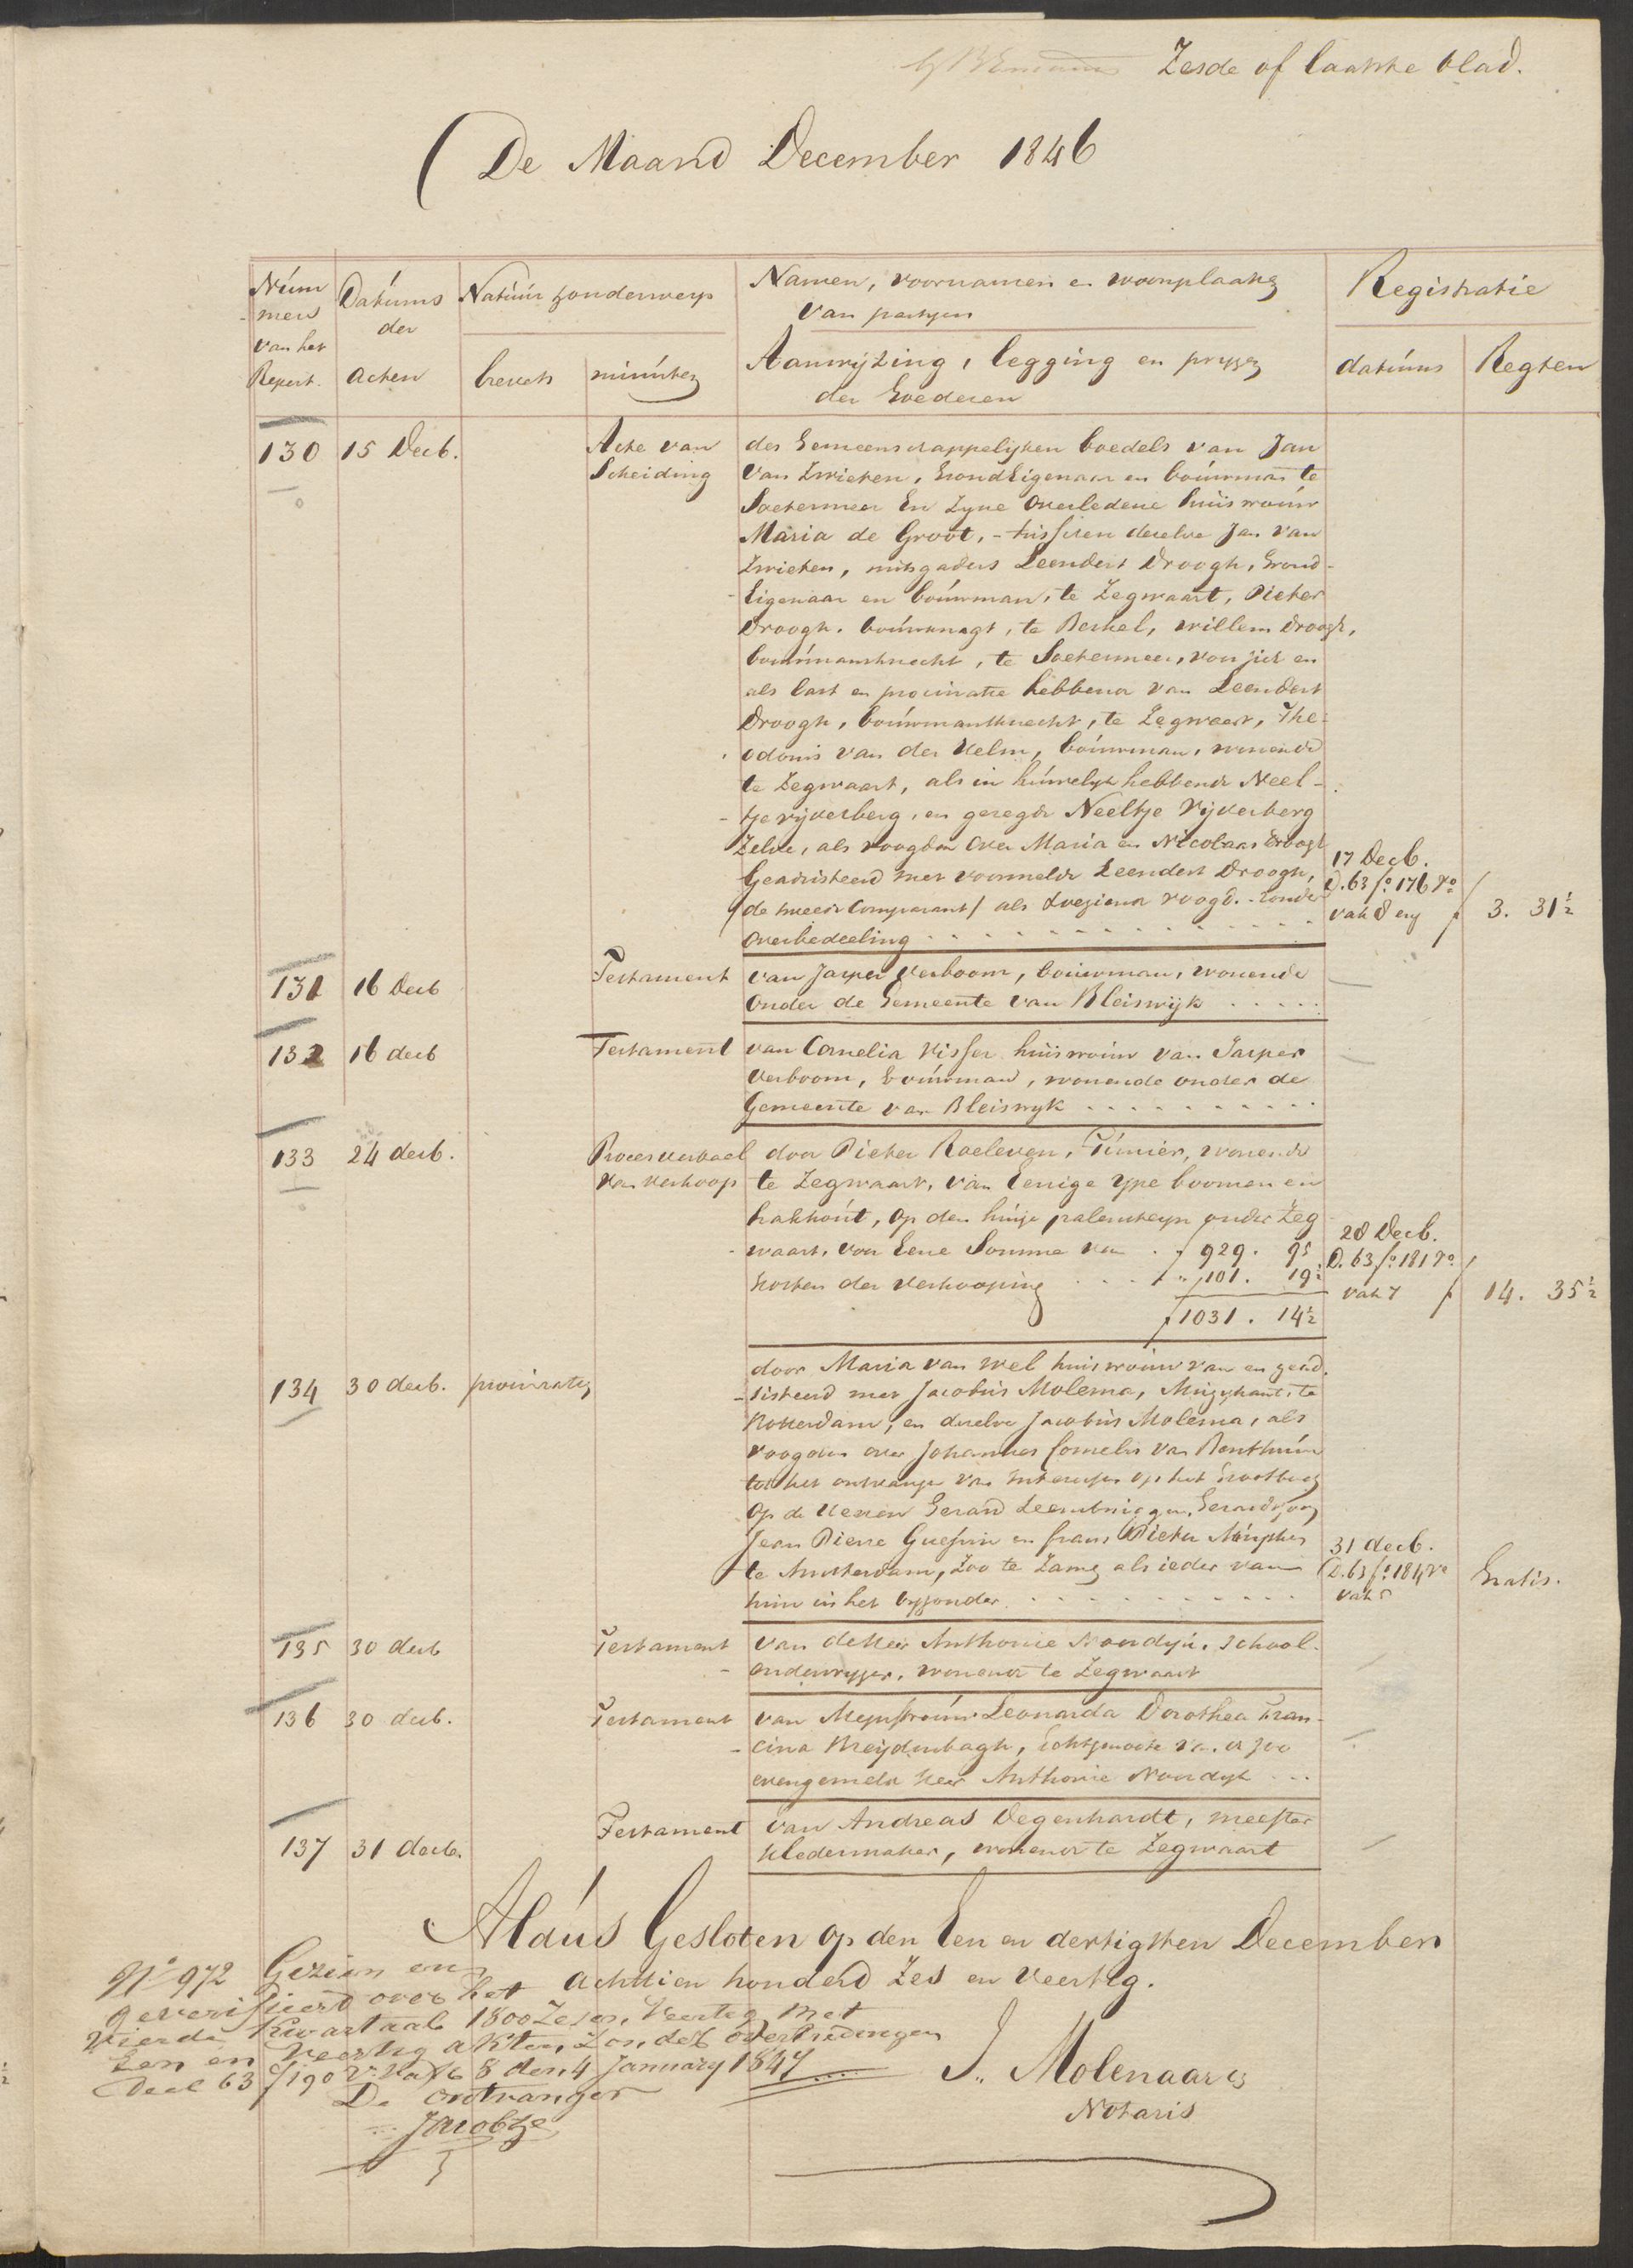 Zesde of laatste blad.
De Maand December 1846
Num
mers
van het
Repert.
Datums
der
acten
Natuur & onderwerp
brevets
minuten
Namen, voornamen en woonplaats
van partyen
Aanwijzing, legging en pryzen
der Goederen
Registratie
datums
Regten
130 15 Decb. Acte van des Gemeenschappelyken boedels van Jan
Scheiding van Zwieten, GrondEigenaar en bouwman te
Soetermeer En Zyne Overledene huisvrouw
Maria de Groot, - tusschen dezelve Jan van
Zwieten, mitsgaders Leendert Droogh, Grond-
Eigenaar en bouwman, te Zegwaart, Pieter
Droogh, bouwknegt, te Berkel, Willem Droogh,
bouwmansknecht, te Soetermeer, voor zich en
als last en procuratie hebbende van Leendert
Droogh, bouwmansknecht, te Zegwaart, The-
odorus van der Helm, bouwman, wonende
te Zegwaart, als in huwelyk hebbende Neel-
tje Vijverberg, en gezegde Neeltje Vijverberg
Zelve, als voogden over Maria en Nicolaas Droogh
Geadsisteerd met voormelde Leendert Droogh, 17 Decb.
/de tweede Comparant/ als toeziend voogd. - Zonder D. 63 fo. 176 Vo
Overbedeeling vak 8 en f 3. 31 1/2
131 16 Decb Testament van Jasper Verboom, bouwman, wonende
Onder de Gemeente van Bleiswijk
132 16 decb Testament van Cornelia Visser huisvrouw van Jasper
Verboom, bouwman, wonende onder de
Gemeente van Bleiswyk
133 24 decb. Procesverbaal door Pieter Roeleven, Tuinier, wonende
van Verkoop te Zegwaart, van Eenige ype boomen en
hakhout, op den huize palensteyn onder Zeg
waart, voor Eene Somme van f 929. 95 28 Decb.
D. 63 fo. 181 Vo.
Kosten der Verkooping " 101. 19 1/2 vak 7 f 14. 35 1/2
f 1031. 14 1/2
134 30 decb. procuratie door Maria van Wel huisvrouw van en gead-
sisteerd met Jacobus Molema, Muzykant, te
Rotterdam, en dezelve Jacobus Molema, als
voogden over Johannes Cornelis van Benthum
tot het ontvangen van Interessen op het Grootboek
Op de Heeren Gerard Leembruggen Gerardszoon
Jean Pierre Guépin en frans Pieter
te Amsterdam, Zoo te Zamen als ieder van
hun in het byzonder
31 decb.
D. 63 fo. 184 Vo
vak 5
Gratis.
135 30 decb Testament van de Heer Anthonie Noordijk, School-
onderwyzer, wonende te Zegwaart
136 30 decb. Testament van Mejufvrouw Leonarda Dorothea Fran-
cina Breijdenbagh, Echtgenoote van de zoo
evengemelde Heer Anthonie Noordyk
137 31 decb. Testament van Andreas Degenhardt, meester
Kledermaker, wonende te Zegwaart
Aldus Gesloten op den Een en dertigsten December
Achttien honderd Zes en Veertig.
J. Molenaar
Notaris
No 972 Gezien en
geverifieerd over het
Vierde Kwartaal 1800 Zes en Veertig met
Een en Veertig akten, Zonder overtredingen
Deel 63 f 190 Vo Vak 8 den 4 January 1847
De ontvanger
Jacobze